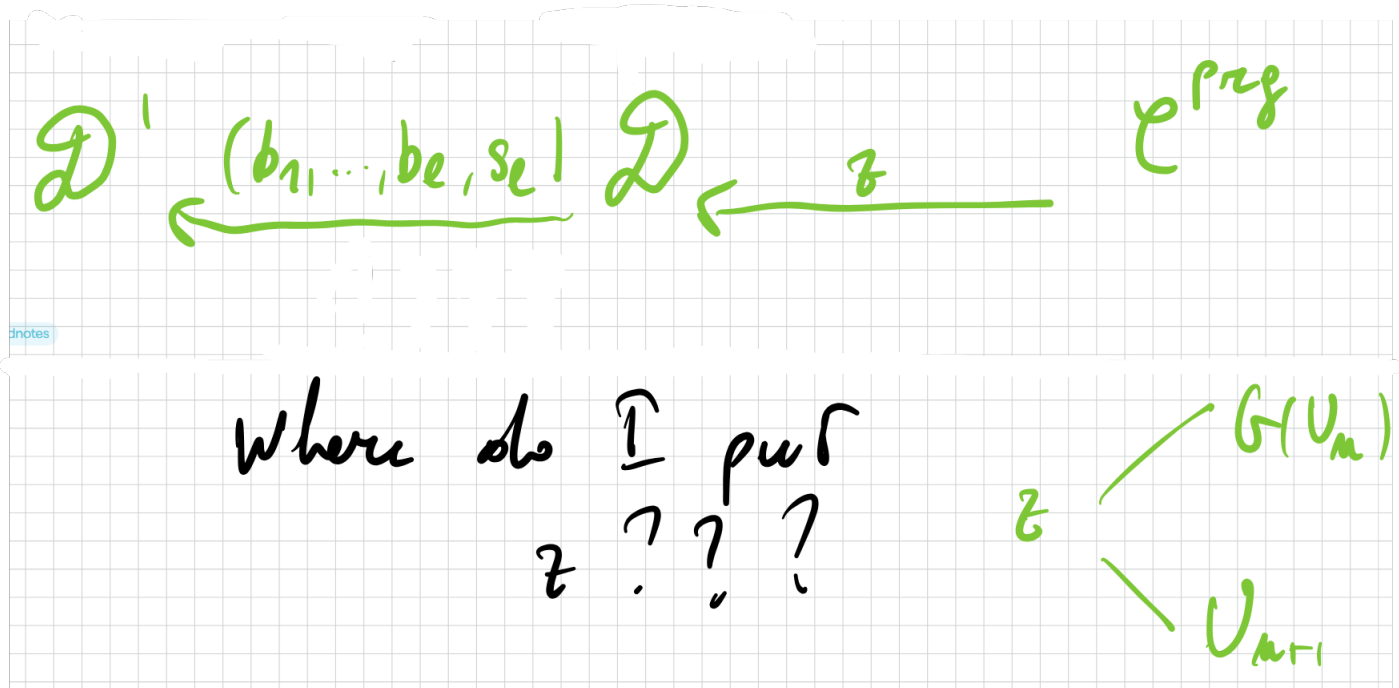 𝒟' (b₁,...,bₑ,sₑ) 𝒟 z 𝒞^prg
dnotes
Where do I put
z ? ? ?
z G(Uₙ)
Uₙ₊₁